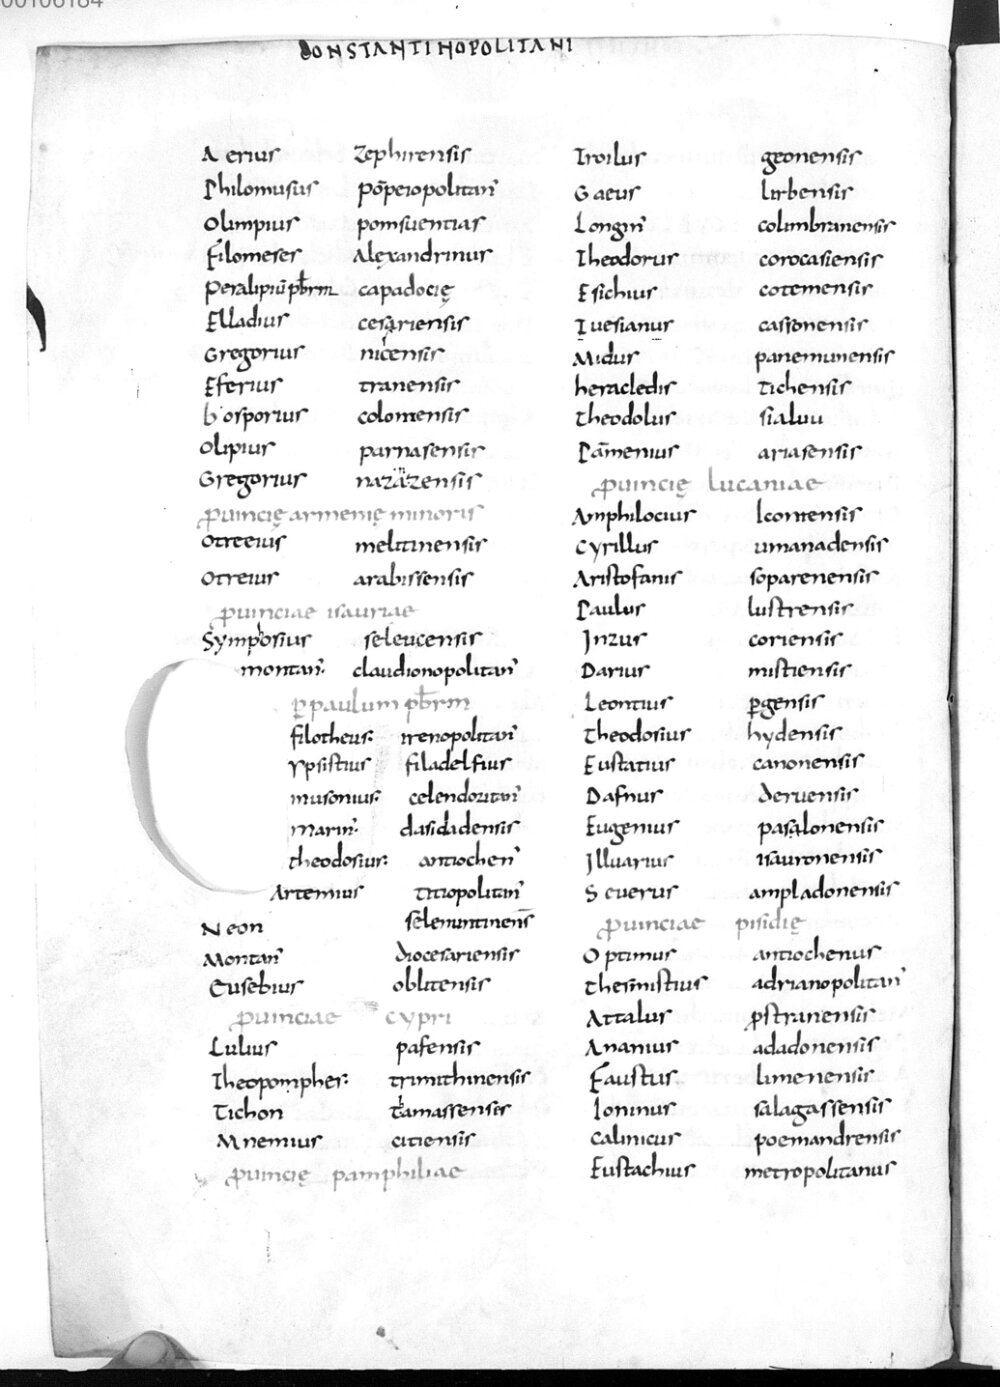 CONSTANTINOPOLITANI
Aerius zephirensis
Philomusus põpeiopolitan̄
Olimpius pomsuentias
Filomeser Alęxandrinus
Peralipiū pb̄rm capadocię
Elladius cesariensis
Gregorius nicensis
Eferius tranensis
bosporius colomensis
Olipius parnasensis
Gregorius nazazensis
ꝓuincię armenię minoris
Otreeius melitinensis
Otreius arabissensis
ꝓuinciae isauriae
Symposius seleucensis
montan̄ claudionopolitan̄
ꝑ paulum pb̄rm
filotheus irenopolitan̄
ypsistius filadelfius
musonius celendoritan̄
marin̄ dasidadensis
theodosius antiochen̄
Artemius titiopolitan̄
Neon selenuntinens̄
Montan̄ diocesariensis
Eusebius oblitensis
ꝓuinciae cypri
Lulius pafensis
Theopompher trimithinensis
Tichon tamassensis
Mnemius citiensis
ꝓuincię pamphiliae
Troilus geonensis
Gaeus lirbensis
Longin̄ colimbranensis
Theodorus corocasiensis
Esichius cotemensis
Tuesianus cassonensis
Midus panemunensis
heracledis tichensis
theodolus sialuu
Pām̄enius ariasensis
ꝓuincię lucaniae
Amphilocius Iconiensis
Cyrillus umanadensis
Aristofanis soparenensis
Paulus lustrensis
Inzus coriensis
Darius mistiensis
Leontius ꝑgensis
theodosius hydensis
Eustatius canonensis
Dafnus deruensis
Eugenius pasalonensis
Illuarius isauronensis
Seuerus ampladonensis
ꝓuinciae pisidię
Optimus antiochenus
themistius adrianopolitan̄
Attalus ꝓstranensis
Ananius adadonensis
Faustus limenensis
Ioninus salagassensis
Calinicus poemandrensis
Eustachius metropolitanus